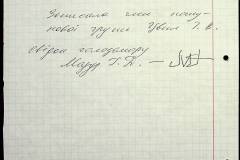 Записала член пошу-
кової групи Цвик Г. В.
Свідок голодомору
Мазур Г. П. —